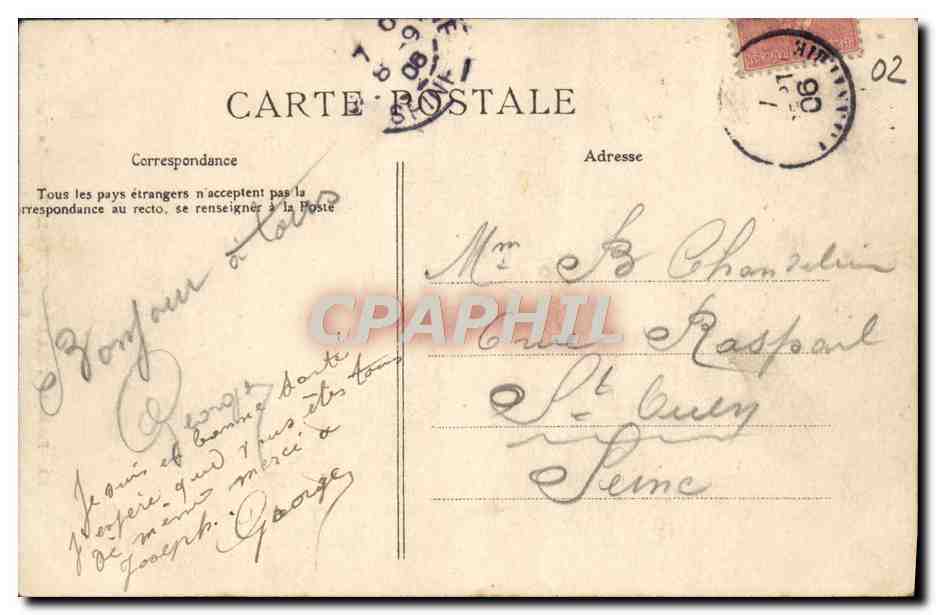 CARTE POSTALE
Correspondance
Tous les pays étrangers n'acceptent pas la
rrespondance au recto, se renseigner à la Poste
Bonjour à tous
George
Je suis et bonne santé
J'espère que vous êtes tous
de même merci a
Joseph. George
Adresse
Mm B Chandelier
rue Raspail
St Ouen
Seine
02
06
SEINE
CPAPHIL